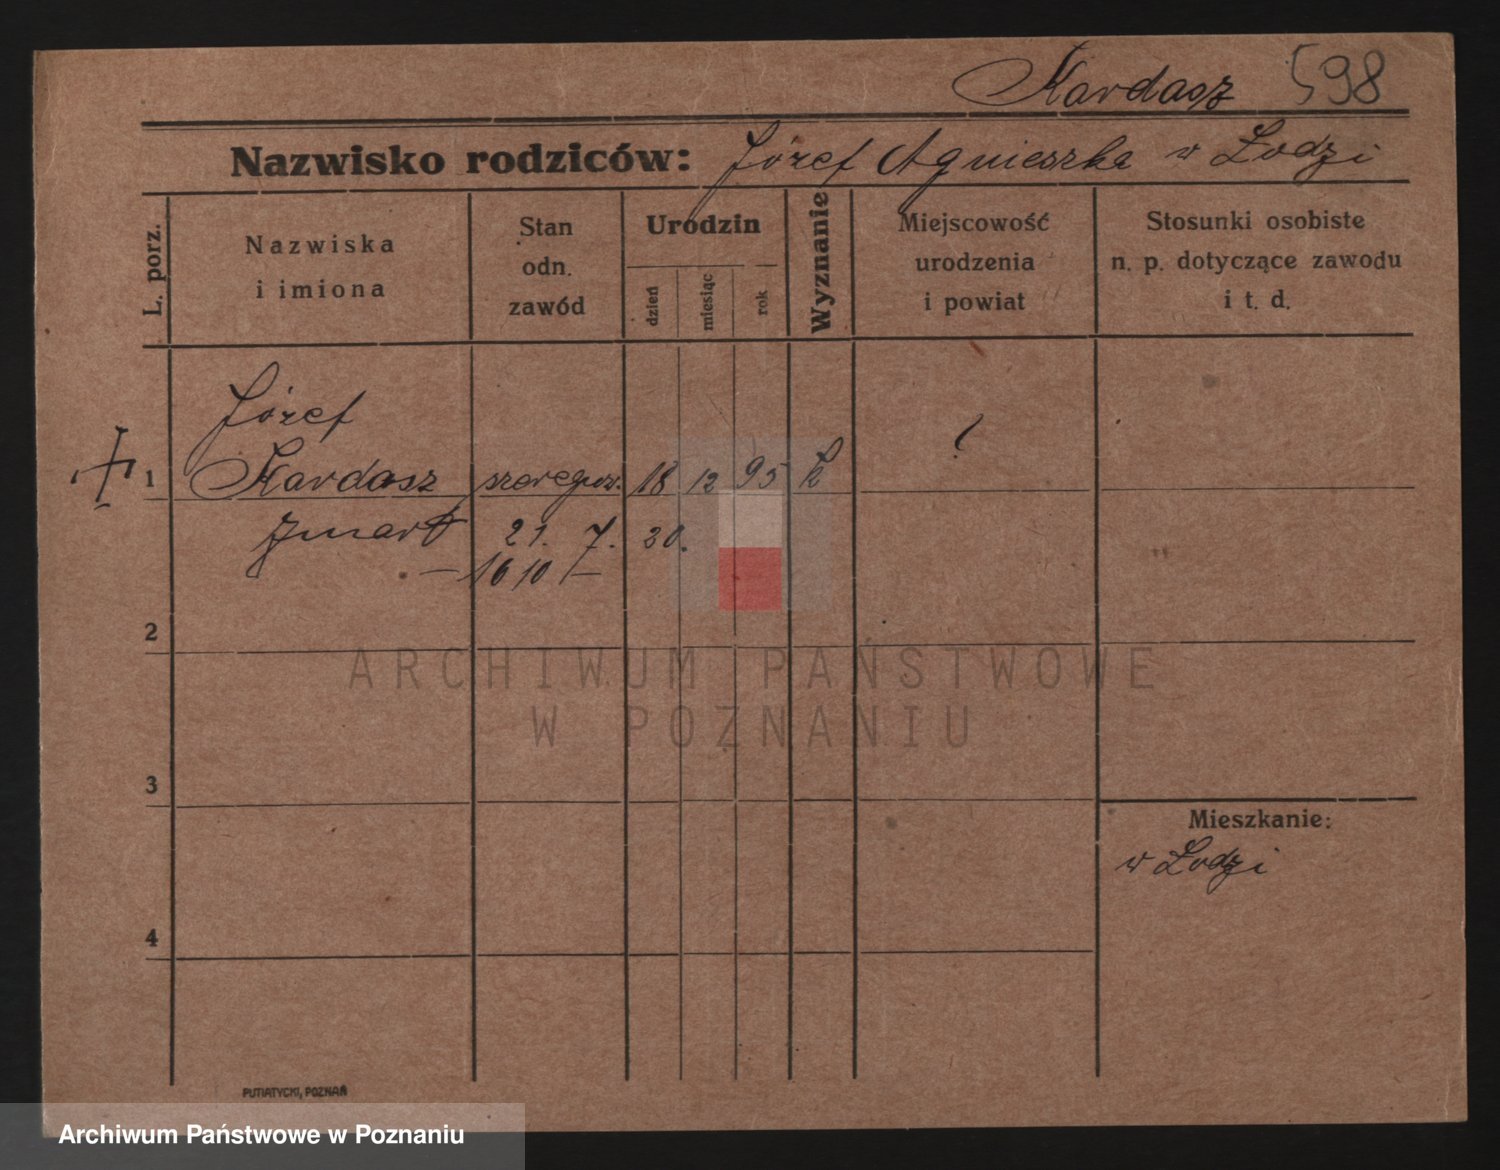 Kardasz 598
Nazwisko rodziców: Józef Agnieszka w Łodzi
L. porz.
Nazwiska
i imiona
Stan
odn.
zawód
Urodzin
dzień
miesiąc
rok
Wyznanie
Miejscowość
urodzenia
i powiat
Stosunki osobiste
n. p. dotyczące zawodu
i t. d.
Józef
1 Kardasz szeregow. 18 12 95 k ?
zmarł 21. 7. 20.
– 1610 / –
2
ARCHIWUM PAŃSTWOWE
W POZNANIU
3
Mieszkanie:
w Łodzi
4
PUTIATYCKI, POZNAŃ
Archiwum Państwowe w Poznaniu